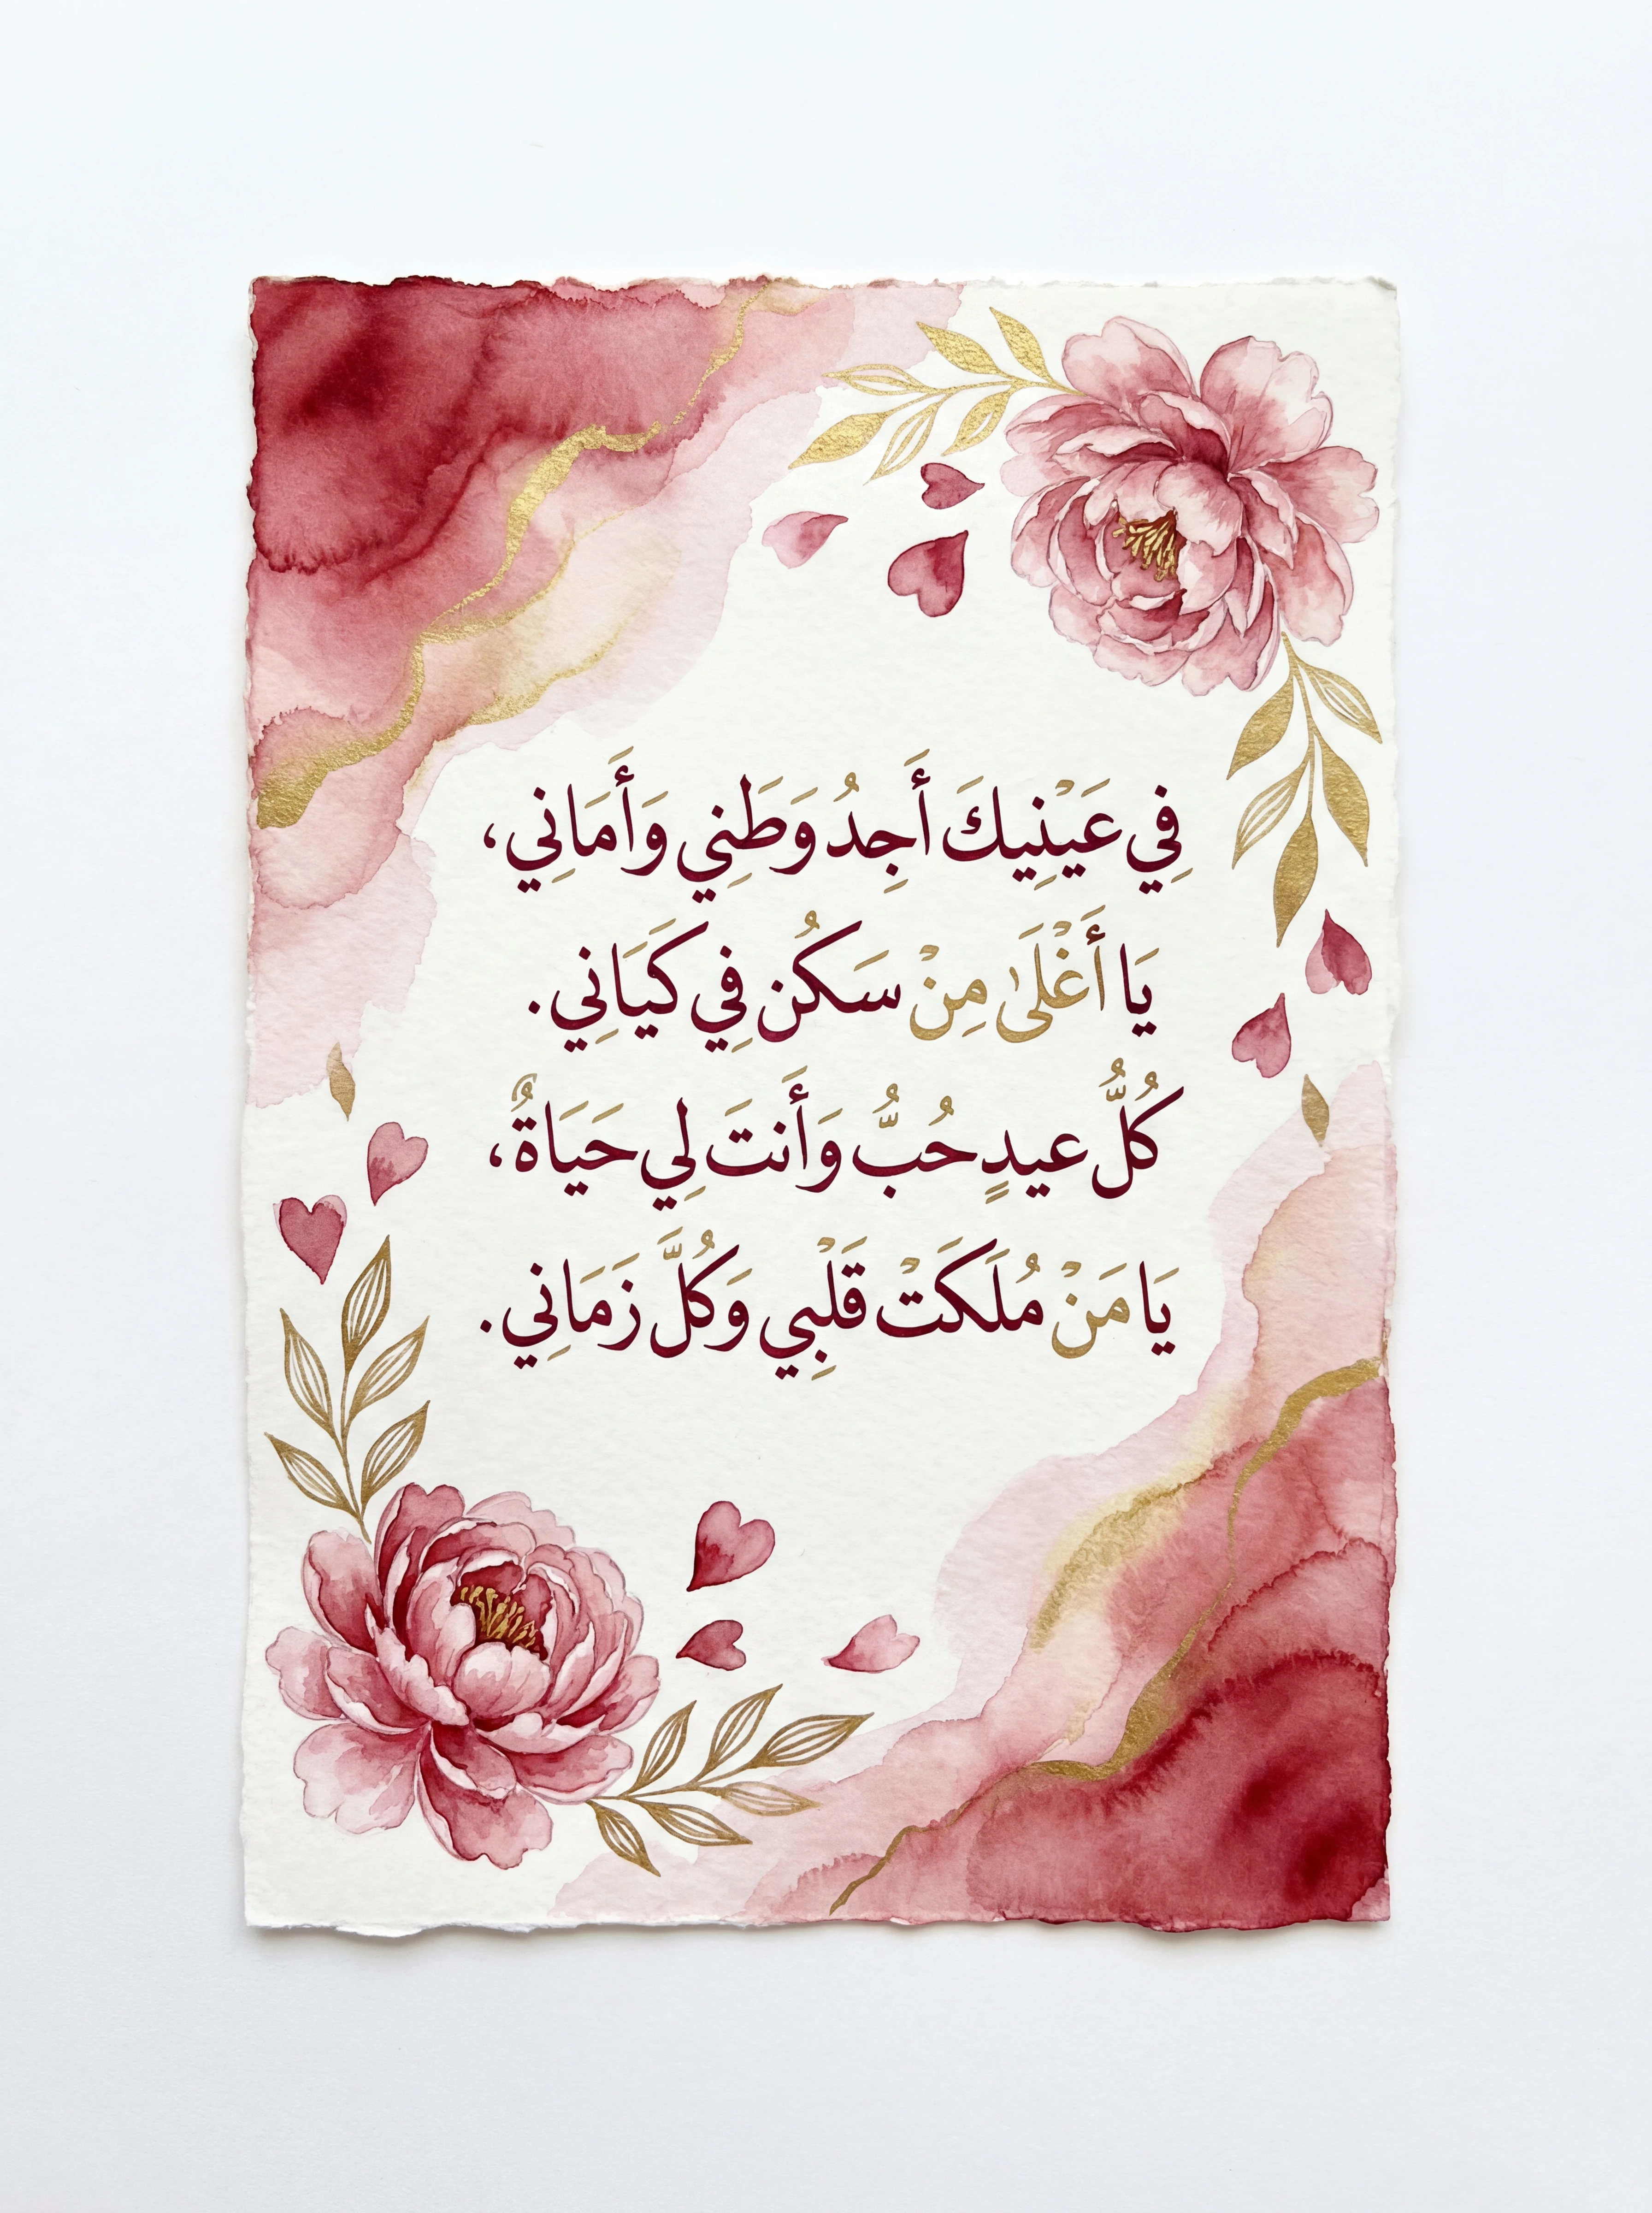 فِي عَيْنِيكَ أَجِدُ وَطَنِي وَأَمَانِي،
يَا أَغْلَىٰ مِنْ سَكُن فِي كَيَانِي.
كُلُّ عيدٍ حُبُّ وَأَنتَ لِي حَيَاةٌ،
يَا مَنْ مُلَكَتْ قَلْبِي وَكُلَّ زَمَانِي.